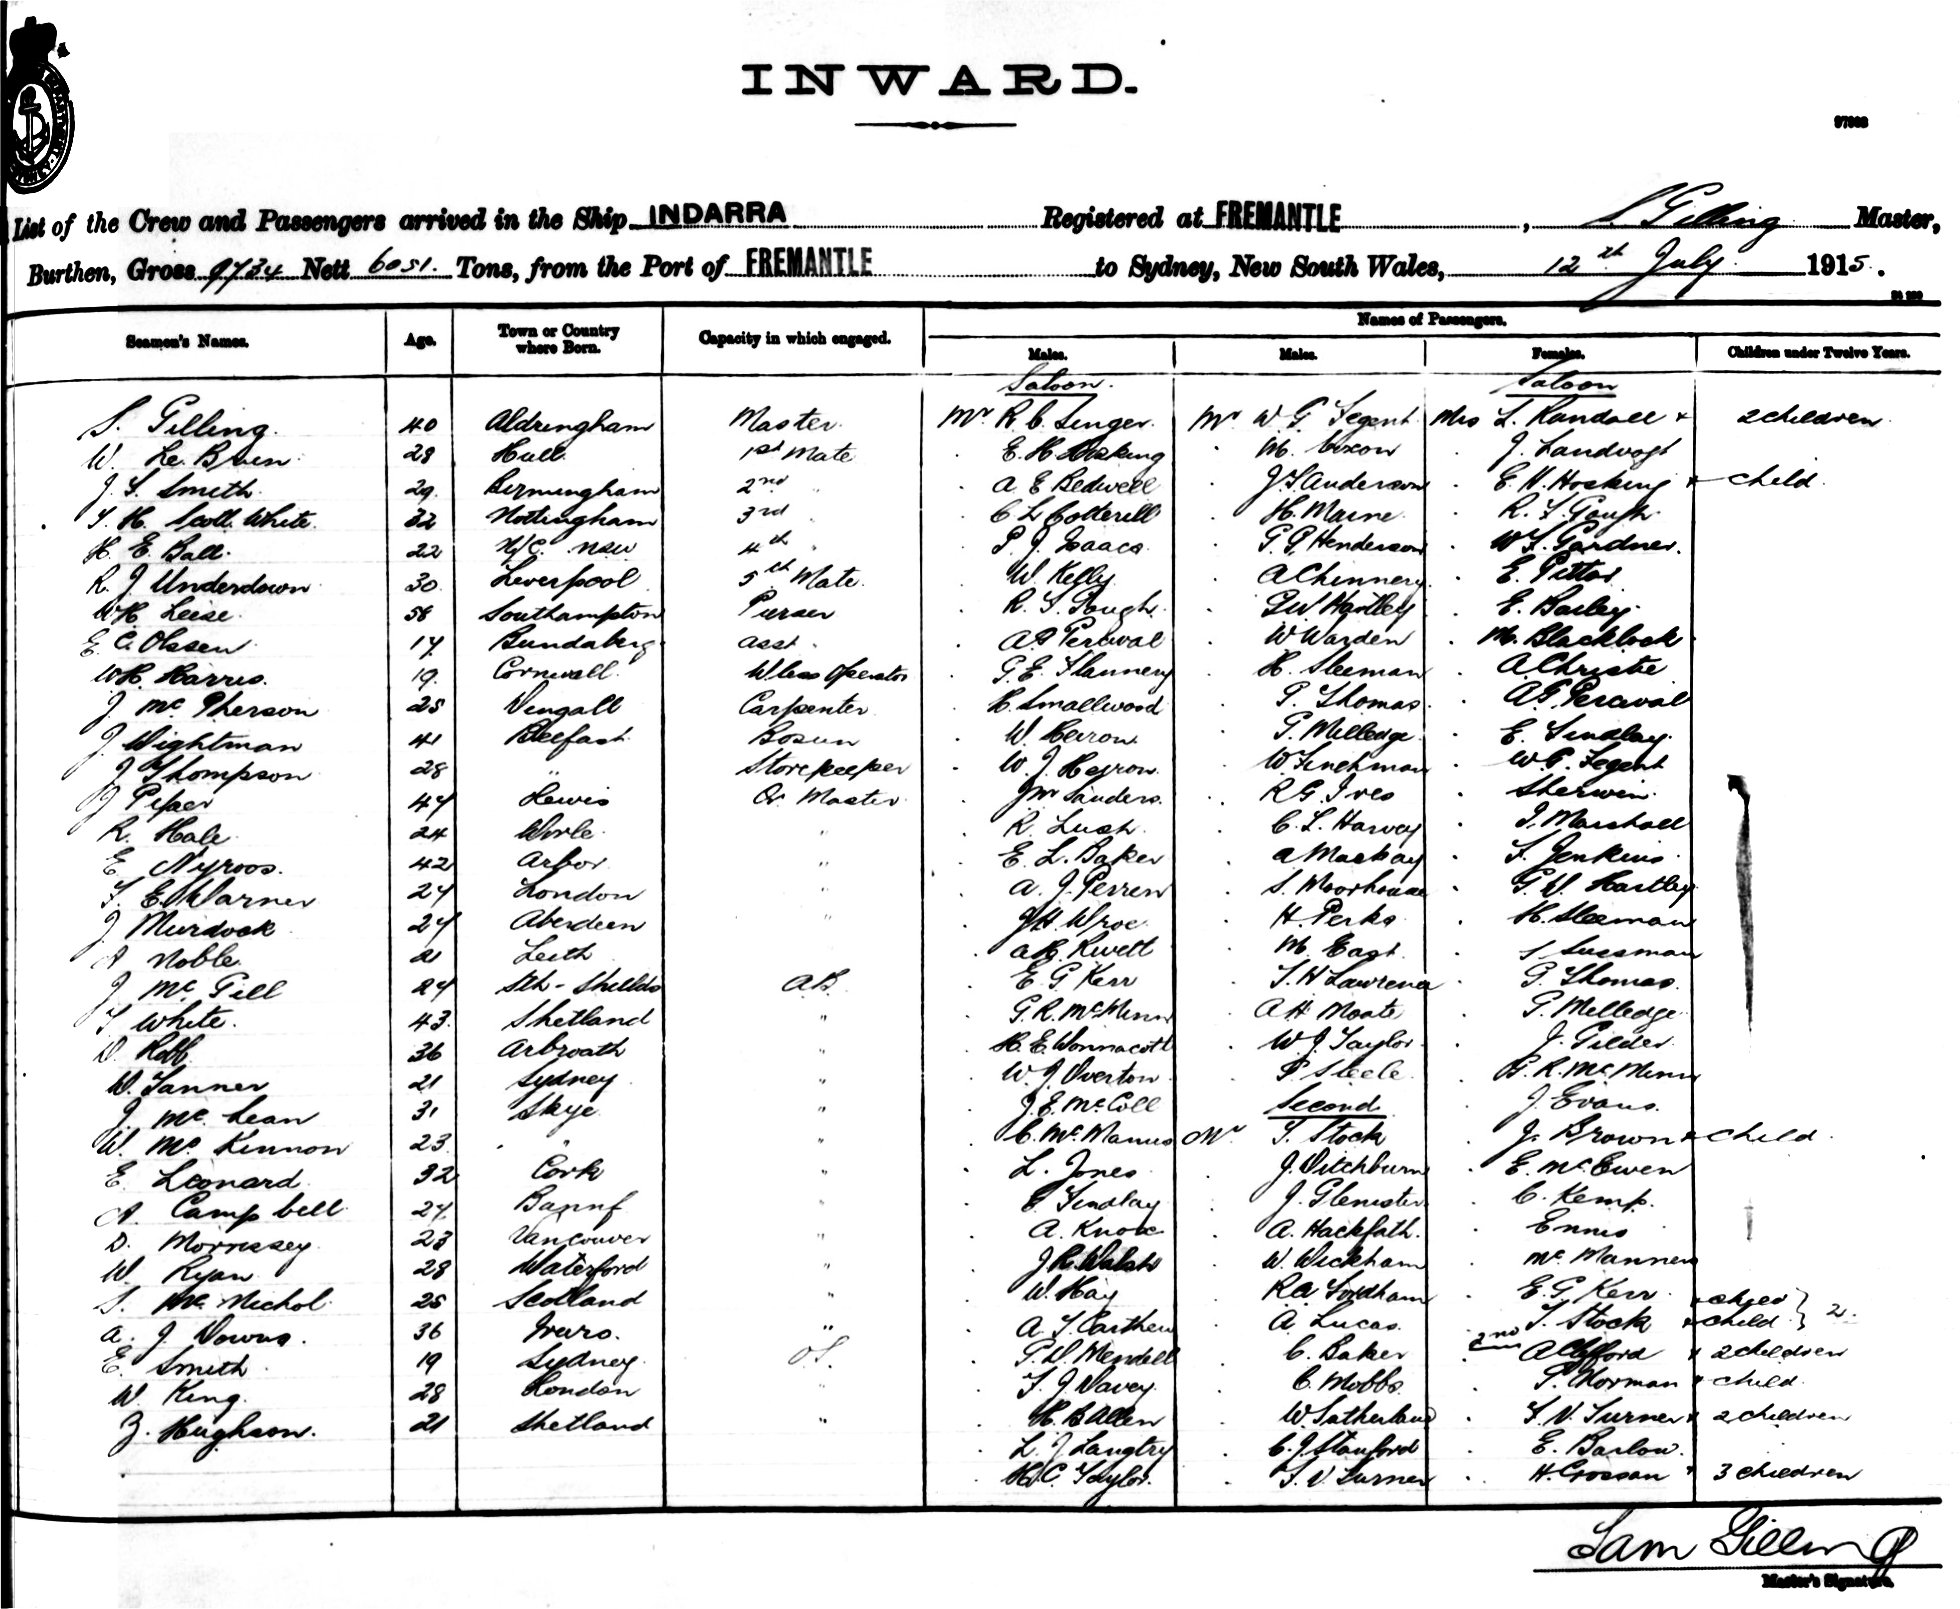 INWARD.
97908
List of the Crew and Passengers arrived in the Ship INDARRA Registered at FREMANTLE, S. Gilling Master,
Burthen, Gross 9734 Nett 6051. Tons, from the Port of FREMANTLE to Sydney, New South Wales, 12th July 1915.
Seamen's Names. Age. Town or Country where Born. Capacity in which engaged. Names of Passengers.
Males. Males. Females. Children under Twelve Years.
Saloon. Saloon
S. Gilling. 40 Aldringham Master. Mr R. C. Singer. Mr W. G. Segent Mrs L. Randall + 2 children
W. Le. Bruen 28 Hull. 1st Mate E. H. Hosking M. Vixon J. Landvogt
J. S. Smith. 29. Birmingham 2nd " A. E Bedwell J S Anderson E. H. Hosking + child.
S. H. Scott White. 32 Nottingham 3rd " C L Cotterill H. Maine. R. S. Gough.
H. E. Ball. 22 N/C. NSW 4th " P. J. Isaacs. G. G. Henderson W S. Gardner.
R. J Underdown 30. Liverpool 5th Mate. W. Kelly A Chennery. E. Pittar.
WH Leese. 58 Southampton Purser R. S. Gough. G W Hartley E. Bailey.
E C. Olssen 17. Bundaberg asst " A G Percival W Warden M. Blacklock.
WH. Harris. 19. Cornwall. Wless Operator G. E. Flannery H. Sleeman A. Christie
J. Mc Pherson 25 Vengall Carpenter H. Smallwood P. Thomas. A G Percival
J Wightman 41 Belfast Bosun W. Heron. G. Milledge. E. Findlay.
J Thompson 28 " Storekeeper W. J. Heyron. W Finchman W. G. Segent
J Piper 47 Lewis Qr Master J M Sanders. R G. Ives Sherwin.
R. Hale 24 Worle. " R. Lush. C. L. Harvey J. Marshall
E Nyroos. 42 Arbor. " E. L. Baker A Mackay S. Jenkins.
S. E. Warner 27 London " A. J. Perren S. Moorhouse G. W. Hartley
J Murdock 27 Aberdeen " J H. Wroe. H. Perks. H. Sleeman
A Noble. 21 Leith " A H. Rivett M. East. S Sussman
J. Mc Gill 27 Sth-Shields AB. E. G. Kerr S. H Lawrence P. Thomas.
T White. 43. Shetland " G. R. McMinn A H. Moate G. Milledge.
D. Robb. 36 Arbroath " H. E. Wonnacott W J Taylor. J. Gilder.
W. Tanner 21 Sydney " W. J Overton P Steele. G. R. McMinn
J. Mc. Lean 31 Skye " J. E. McColl Second J. Evans.
W. Mc Kinnon 23. " " C. Mc Manus Mr T. Stock J. Brown + child.
E. Leonard. 32 Cork " L. Jones J. Ditchburn E. McEwen
A. Campbell 27. Banff " E Findlay J. Glenister. C. Kemp.
D. Morrissey. 23 Vancouver " A. Knox A. Hackfath. Ennis
W. Ryan 28 Waterford " J R. Walsh W. Wickham Mc Manners
S. Mc. Nichol. 25 Scotland " W. Hay R A Fordham E. G Kerr + child } 2.
A. J Downs. 36 Truro. " A S. Carthew A. Lucas. T. Stock + child
E. Smith. 19 Sydney. OS. G. D. Mendell C. Baker 2nd A Clifford + 2 children
W. King. 28 London " F. J Davey C. Mobbs P. Norman + child.
Z. Hughson. 21 Shetland " H. B Allen W. Sutherland S. V. Turner + 2 children
L. J Langtry C. J Stanford E. Barlow.
H. C. Taylor. S. V Turner H. Crossan + 3 children
Sam Gilling
Master's Signature.